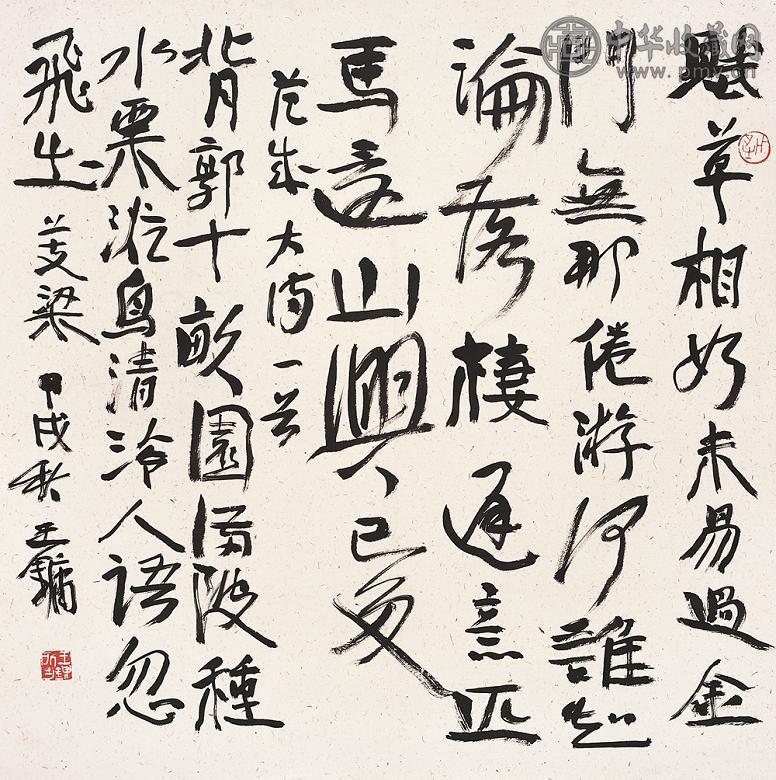 中华收藏网
www.pmy.cn
賦草相如未易過金
門無那倦游何誰知
論落棲遲意匹
馬遠山興已多
范成大詩一首
背郭十畝園陂種
水栗浴鳥清泠人語忽
飛出芰梁
甲戌秋王鏞